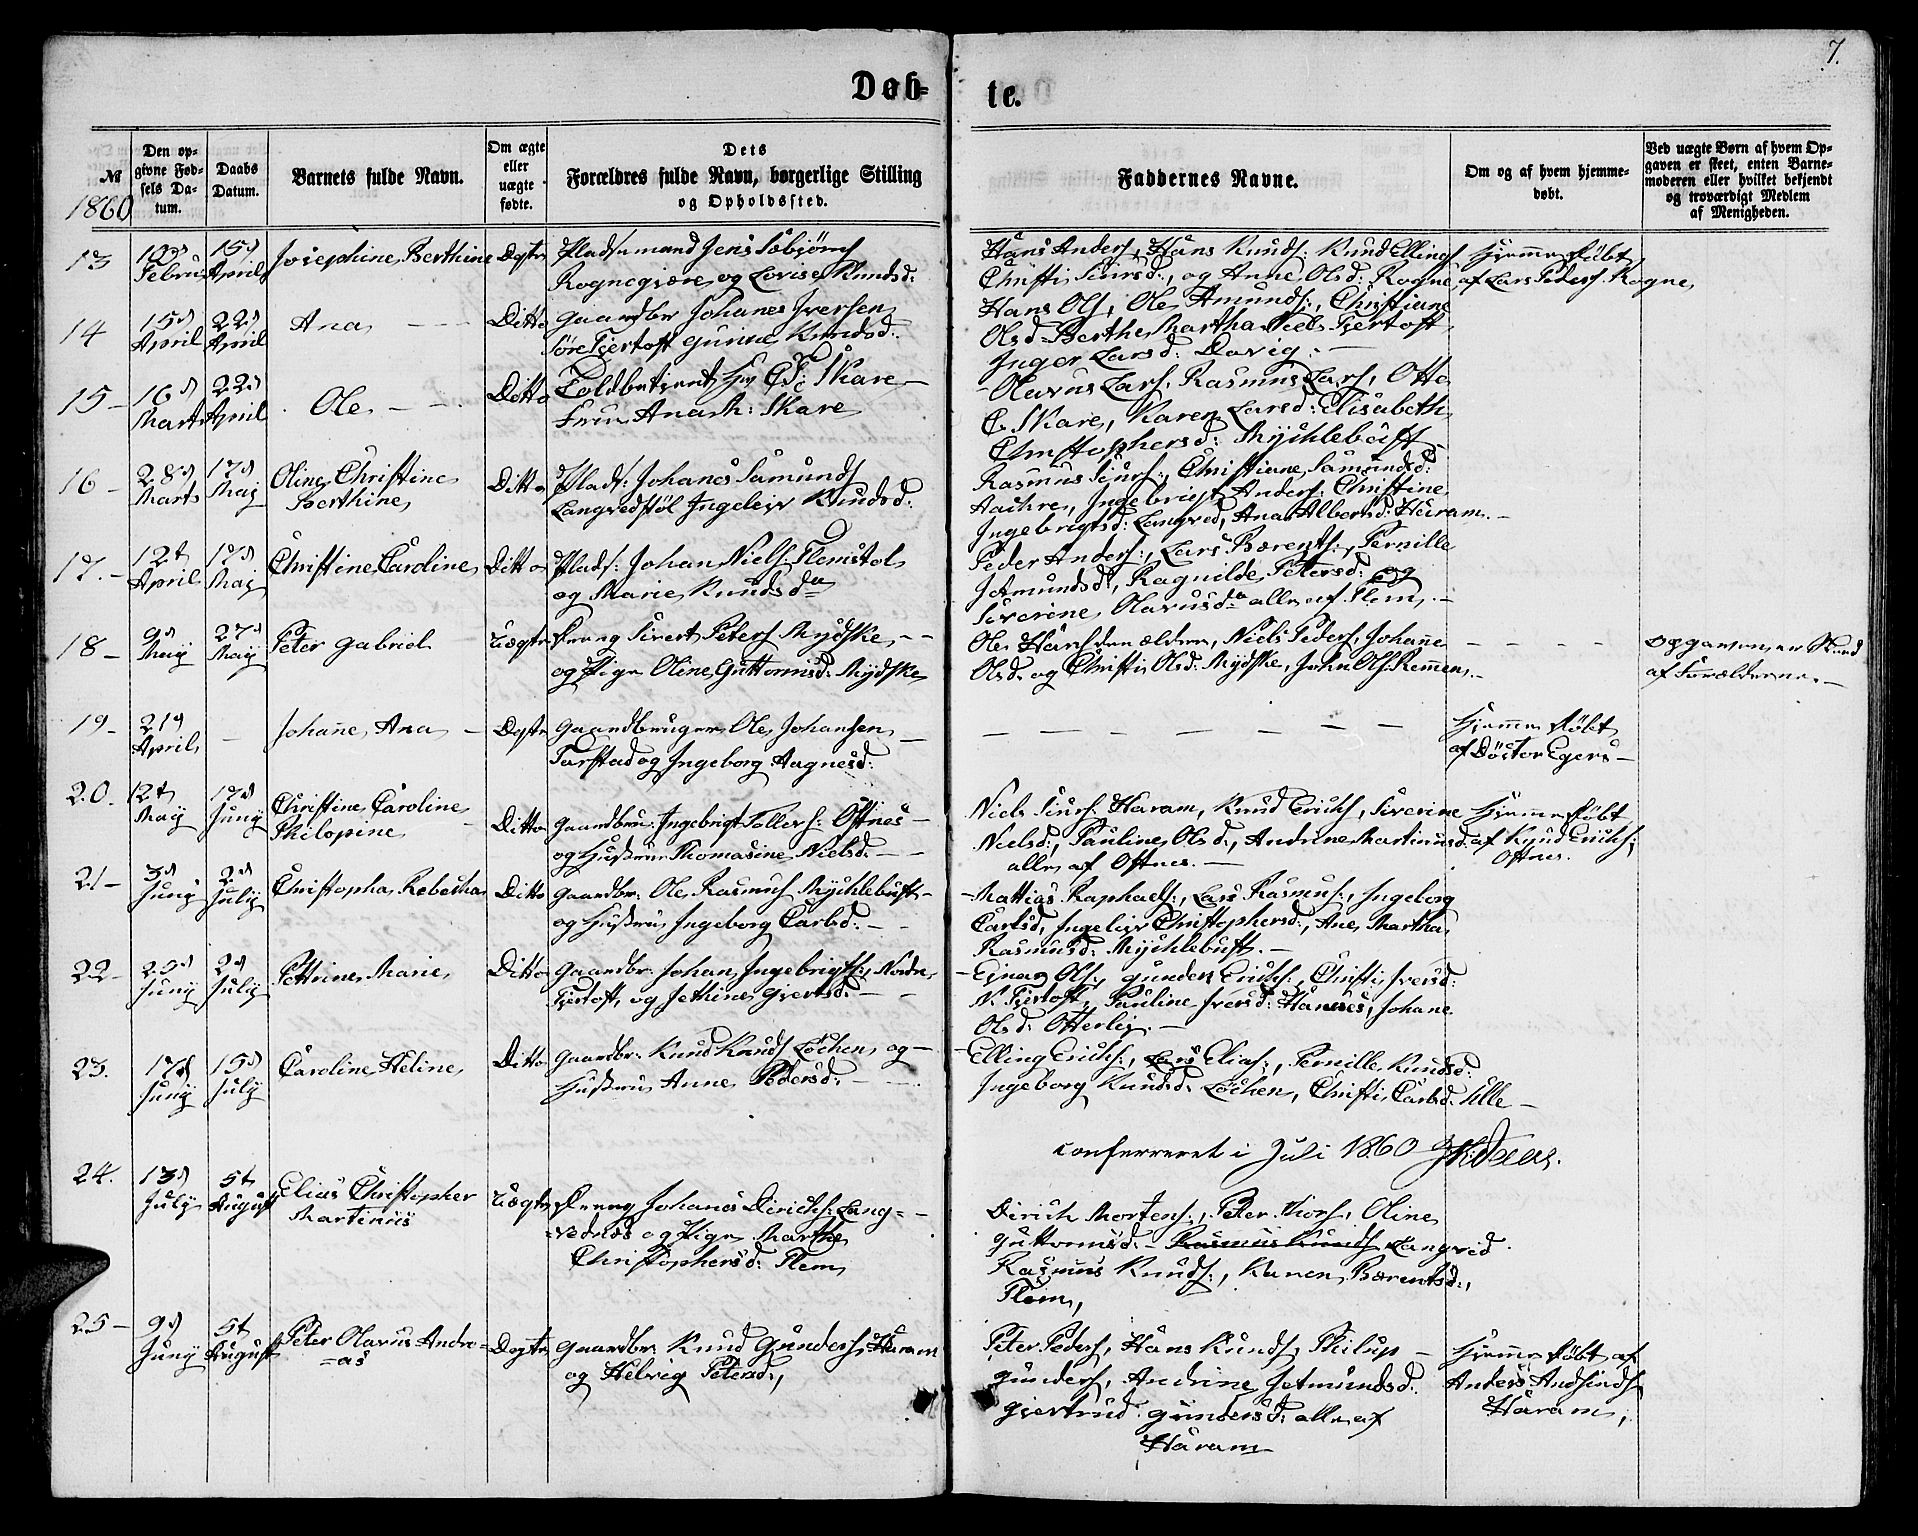 7.
Døb-
te.
№
1860
Den op-
givne Fød-
sels Da-
tum.
Daabs
Datum.
Barnets fulde Navn.
Om ægte
eller
uægte
fødte.
Dets
Forældres fulde Navn, borgerlige Stilling
og Opholdssted.
Faddernes Navne.
Om og af hvem hjemme-
døbt.
Ved uægte Børn af hvem Op-
gaven er skeet, enten Barne-
moderen eller hvilket bekjendt
og troværdigt Medlem
af Menigheden.
13
Februar
15d
April
Josephine Berthine
Degte
Pladsemand Jens
Rogne og Lovise Knudsd:
Hans Anders, Hans Knuds: Knud Ellings
Christi, og Anne Olsd: Rogne
Hjemmedøbt
af Lars Peders. Rogne
14
15d
April
22d
April
Ana
Ditto
Gaardbr Johanes Iversen
Søre Fjertoft Gurine Knudsd:
Hans Ols, Ole Amunds:, Christiane
Olsd: Berthe Martha Niels Fjertoft
Inger Larsd: Davig.
15 -
16d
Marts
22d
April
Ole
Ditto
Toldbetjent Hr C: F: Skare
Frue Ana M: Skare
Olavus Lars, Rasmus Lars, Otto
C Skare, Karen Larsd: Elisabeth
Christophersd: Myklebust
16 -
28d
Marts
17d
Maj
Oline Christine
Berthine
Ditto
Plads: Johanes Samunds
Langvedstøl Ingeleiv Knudsd:
Rasmus Siurs:, Christiane Samundsd:
Ingebrigt Anders: Christine
Ingebrigtsd: Langved, Ana Albertsd: Haram.
17. -
12t
April
17d
Maj
Christine Caroline
Ditto
Plads: Johan Niels: Flemstøl
og Marie Knudsda
Peder Anders:, Lars Bærents:, Pernille
Amundsd:, Ragnilde Petersd: og
Siverine Olavusda alle af Flem. -
18 -
9d
May
27d
May
Peter Gabriel
Uægte
Dreng Sivert Peters Mydske
og Pige Oline Guttormsd: Mydske
Ole Hans den ældre, Niels Peders, Johane
Olsd: og Christi Olsd: Mydske, John Ols: Remmen. -
Opgaven er Skeed
af Forældrene. -
19 -
21d
April
Johane Ana
Degte
Gaardbruger Ole Johansen
Farstad og Ingeborg Aagesd:
Hjemmedøbt
af Doctor Egers -
20.
12t
May
17d
Juny
Christine Caroline
Philopine
Ditto
Gaardbru: Ingebrigt Tollevs: Ostnes -
og Hustru Thomasine Nielsd: -
Niels Siurs: Haram, Knud Ericks, Siverine
Nielsd:, Pauline Olsd:, Andrine Martinusd:
alle af Ostnes. -
Hjemmedøbt
af Knud Ericks;
Ostnes.
21 -
3d
Juny
2d
July
Christopha Rebecha
Ditto
Gaardbr: Ole Rasmus Myklebust -
og Hustru Ingeborg Carlsd:
Mattias Raphaels:, Lars Rasmus:, Ingeborg
Carlsd, Ingeleiv Christophersd:, Ane Martha
Rasmusd: Myklebust. -
22 -
23d
Juny
2d
July
Pettrine Marie
Ditto
Gaardbr: Johan Ingebrigts:, Nordre
Fjertoft, og Jethine Giertsd:
Ejnar Ols, Gunder Ericks:, Christi Iversd:
N. Fjertoft, Pauline Iversd: Hannes, Johane
Olsd: Otterlei. -
23.
17d
Juny
15d
July
Caroline Heline
Ditto
Gaardbr: Knud Knuds Løchen, og -
Hustru Anne Pedersd:
Elling Ericks:, Lars Elias:, Pernille Knudsd:
Ingeborg Knudsd: Løchen, Christi Carlsd: Ulle -
conferreret i Juli 1860
24.
13d
July
5t
August
Elias Christopher
Martinus
Uægte
Dreng Johanes Dirichs: Lang=
=vednes og Pige Marthe
Christophersd: Flem
Dirich Mortens:, Peter Thors, Oline
Guttormsd: - Rasmus Knuds Langved
Rasmus Knuds:, Karen Bærentsd:,
Flem,
25 -
9d
Juny
5t
August
Peter Olavus Andre=
=as
Degte
Gaardbr: Knud Gunders: Haram
og Helvig Petersd:,
Peter Peders, Hans Knuds, Philup -
Gunders, Andrine Jetmundsd:
Giertrud Gundersd: alle af
Haram
Hjemmedøbt af
Anders
Haram,